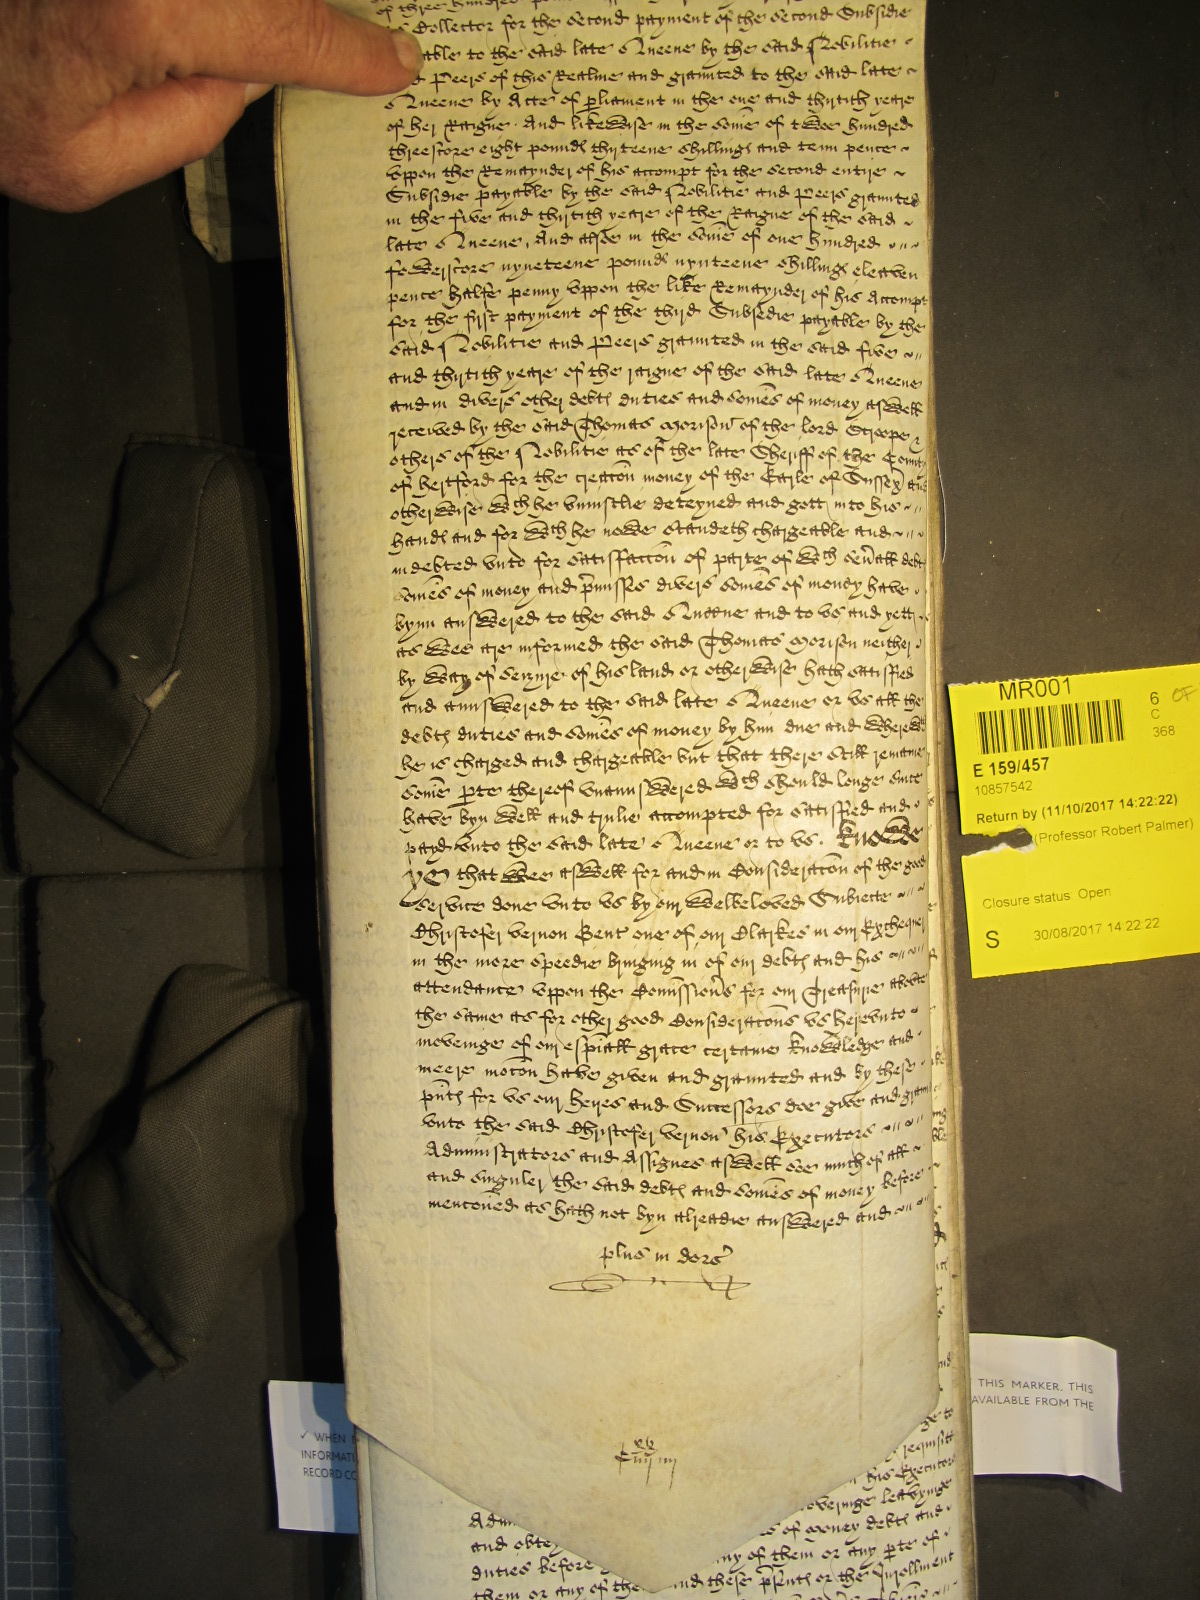 of three hundred
Collector for the second payment of the second Subsidie
able to the said late Queene by the said Nobilitie
Peers of this Realme and graunted to the said late
Queene by Acte of pliament in the one and thirtith yeare
of her Raigne. And likewise in the some of twoe hundred
threescore eight pounds thirteene shillings and tenn pence
vppon the Remaynder of his accompt for the second entire
Subsidie payable by the said Nobilitie and Peers graunted
in the five and thirtith yeare of the Raigne of the said
late Queene, And alsoe in the some of one hundred
fowerscore nyneteene pounds nynteene shillings eleaven
pence halfe penny vppon the like Remaynder of his Accompt
for the first payment of the third Subsedie payable by the
said Nobilitie and Peers graunted in the said five
and thirtith yeare of the raigne of the said late Queene
and in divers other debts duties and somes of money aswell
received by the said Thomas Morison of the lord Scroope &
others of the Nobilitie as of the late Sheriff of the County
of Hertford for the creacon money of the Earle of Sussex and
otherwise wch he vniustlie deteyned and gott into his
hands and for wch he nowe standeth chargeable and
indebted vnto for satisfaccon of parte of wch seuall debts
somes of money and pmisses divers somes of money have
bynn answered to the said Queene and to vs and yett
as wee are informed the said Thomas Morison neither
by way of seizure of his land or otherwise hath satisfied
and aunswered to the said late Queene or vs all the
debts duties and somes of money by him due and wherewth
he is charged and chargeable but that there still remaine
some pte thereof vnaunswered wch should longe since
have byn well and trulie accompted for satisfied and
payd vnto the said late Queene or to vs. Knowe
ye that wee aswell for and in Consideracon of the good
service done vnto vs by our welbeloved Subiecte
Christofer Vernon Gent one of our Clarkes in our Exchequer
in the more speedie bringing in of our debts and his
attendance vppon the Comissioners for our Treasure above
the same as for other good Consideracons vs herevnto
moveinge of our espiall grace certaine knowledge and
meere mocon have given and graunted and by these
pnts for vs our heyres and Successors doe give and graunt
vnto the said Christofer Vernon his Executors
Administrators and Assignes aswell soe much of all
and singuler the said debts and somes of money before
menconed as hath not byn alreadie answered and
plus in dors
MR001
6 OF
C
368
E 159/457
10857542
Return by (11/10/2017 14:22:22)
(Professor Robert Palmer)
Closure status Open
S 30/08/2017 14:22:22
THIS MARKER. THIS
AVAILABLE FROM THE
✓ WHEN
INFORMATI
RECORD CO
requisitt
his Executors
Adm
and obte
s of money debts and
duties before
ny of them or any pte of
them or any of the
nd these psents or the Inrollment